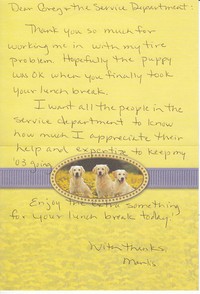 Dear Greg & the Service Department:
Thank you so much for
working me in with my tire
problem. Hopefully the puppy
was ok when you finally took
your lunch break.
I want all the people in the
service department to know
how much I appreciate their
help and expertise to keep my
'03 going.
Enjoy the extra something
for your lunch break today!
With thanks,